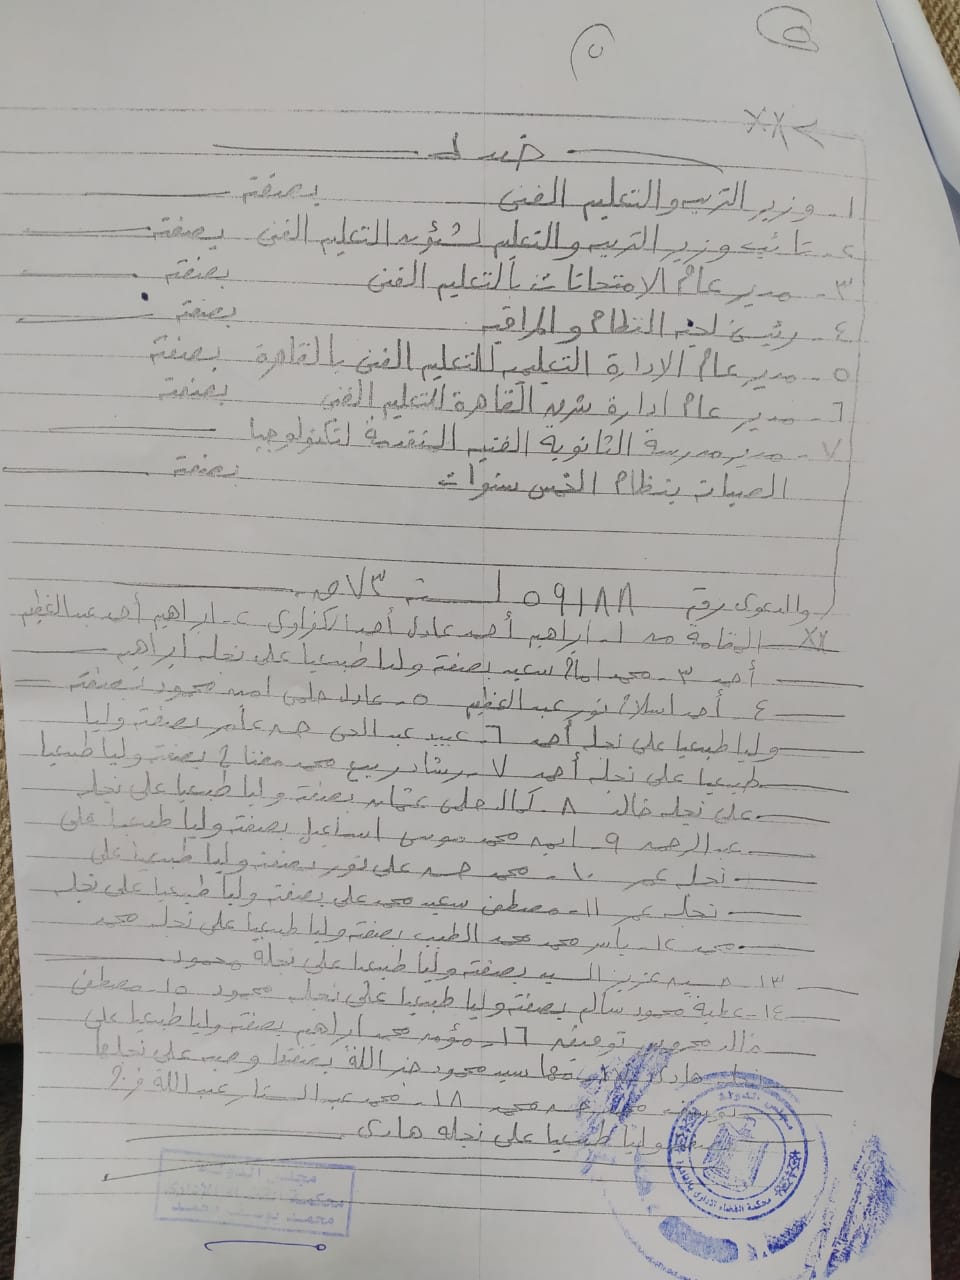 ٥
ضد
١- وزير التربيه والتعليم الفنى بصفته
٢- نائب وزير التربيه والتعليم لشئون التعليم الفنى بصفته
٣- مدير عام الامتحانات بالتعليم الفنى بصفته
٤- رئيس لجنه النظام والمراقبه بصفته
٥- مدير عام الادارة التعليميه للتعليم الفنى بالقاهرة بصفته
٦- مدير عام ادارة شرق القاهرة للتعليم الفنى بصفته
٧- مدير مدرسة الثانوية الفنيه المتقدمة لتكنولوجيا
الصيانة بنظام الخمس سنوات بصفته
والدعوى رقم ٥٩١٨٨ لسنة ٧٣ ق
المقامة من ١- ابراهيم أحمد عادل أحمد الكفراوى ٢- ابراهيم أحمد عبد العظيم
أحمد ٣- محمد امام سعيد بصفته وليا طبيعيا على نجله ابراهيم
٤- أحمد اسلام نور عبد العظيم ٥- عادل حلمى امين محمود بصفته
وليا طبيعيا على نجله أحمد ٦- عبيد عبد الحى حسن عامر بصفته وليا
طبيعيا على نجله أحمد ٧- رشاد ربيع محمد مفتاح بصفته وليا طبيعيا
على نجله خالد ٨- كمال حلمى عثمان بصفته وليا طبيعيا على نجله
عبد الرحمن ٩- ايمن محمد موسى اسماعيل بصفته وليا طبيعيا على
نجله عمر ١٠- محمد حسن على نور بصفته وليا طبيعيا على
نجله عمر ١١- مصطفى سعيد محمد على بصفته وليا طبيعيا على نجله
محمد ١٢- ياسر محمد محمد الطيب بصفته وليا طبيعيا على نجله محمد
١٣- عزيز السيد بصفته وليا طبيعيا على نجله محمود
١٤- عطية محمود سالم بصفته وليا طبيعيا على نجله محمود ١٥- مصطفى
خالد محروس توفيق ١٦- مؤمن محمد ابراهيم بصفته وليا طبيعيا على
مها سيد محمود خير الله بصفتها وصيه على نجلها
محمد ١٨- محمد عبد الستار عبد الله فرج
وليا طبيعيا على نجله هادى
مجلس الدولة
محكمة القضاء الادارى بالقاهرة